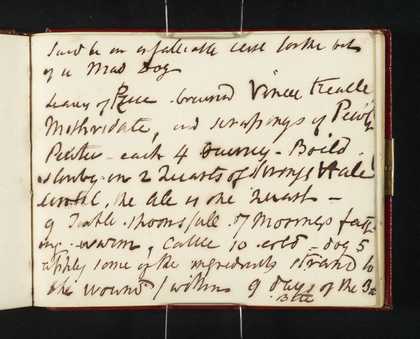 Said to be an infallible cure for the bite
of a Mad Dog
Leaves of Rue bruised Venice Treacle
Mithridate, and scrapings of Pewter
each 4 Ounces - Boild
slowly in 2 Quarts of Strong Ale
until the Ale is one Quart -
9 Table spoonsfull 7 Mornings fast-
ing - warm, Cattle 10 cold - dog 5
apply some of the ingredients strained to
the wound / within 9 days of the Bite